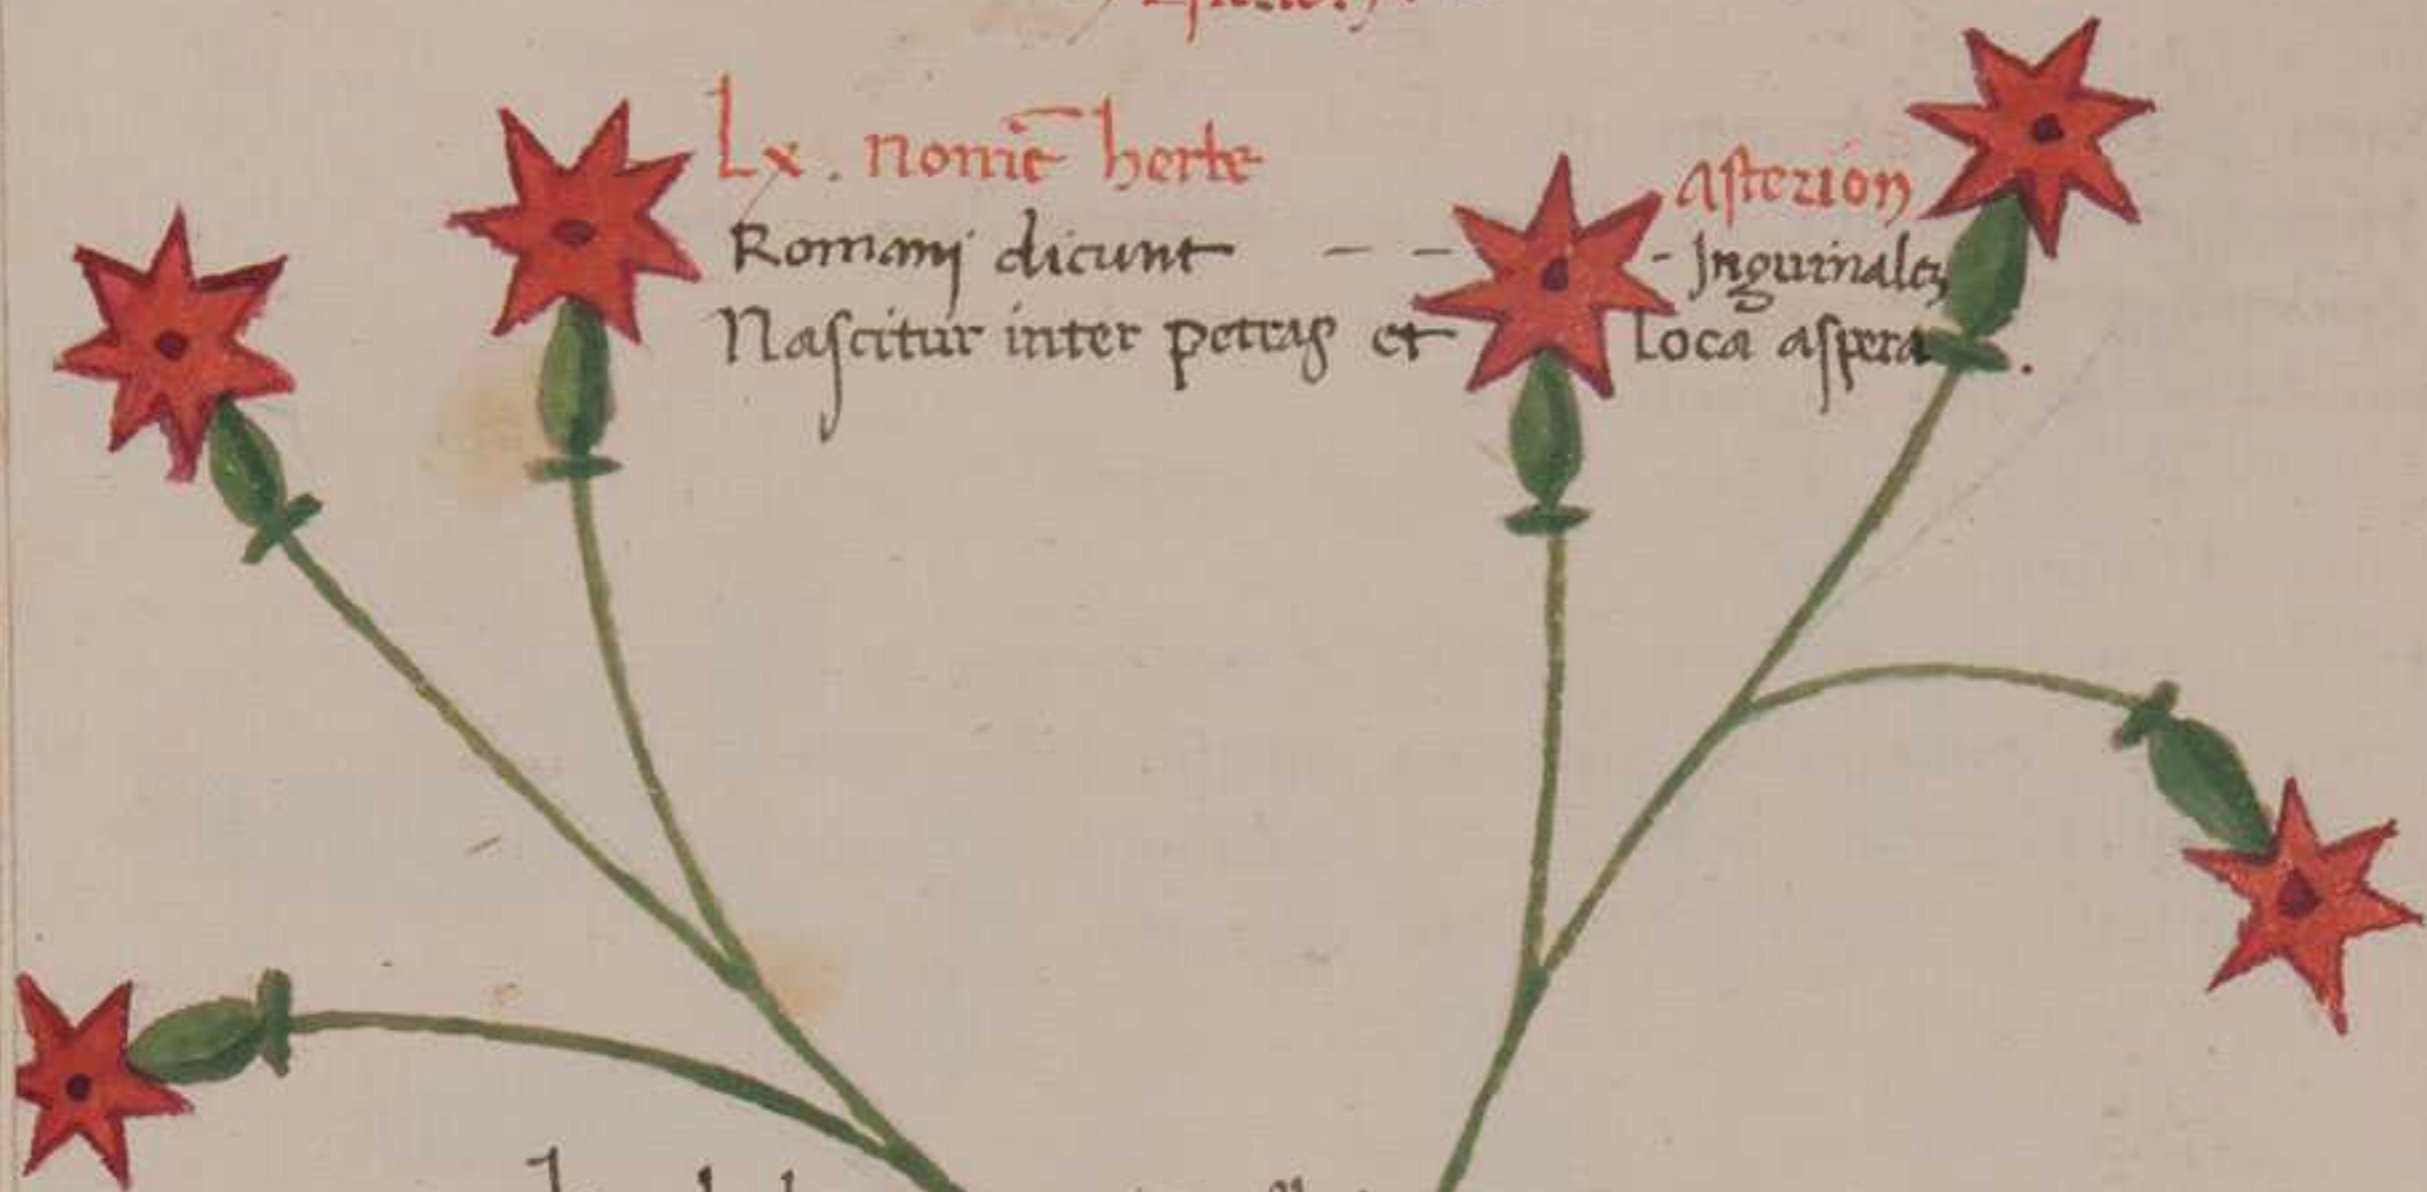 Lx. nomē herbe asterion
Romanj dicunt - - - Jnguinalez
Nascitur inter petras et loca aspera.